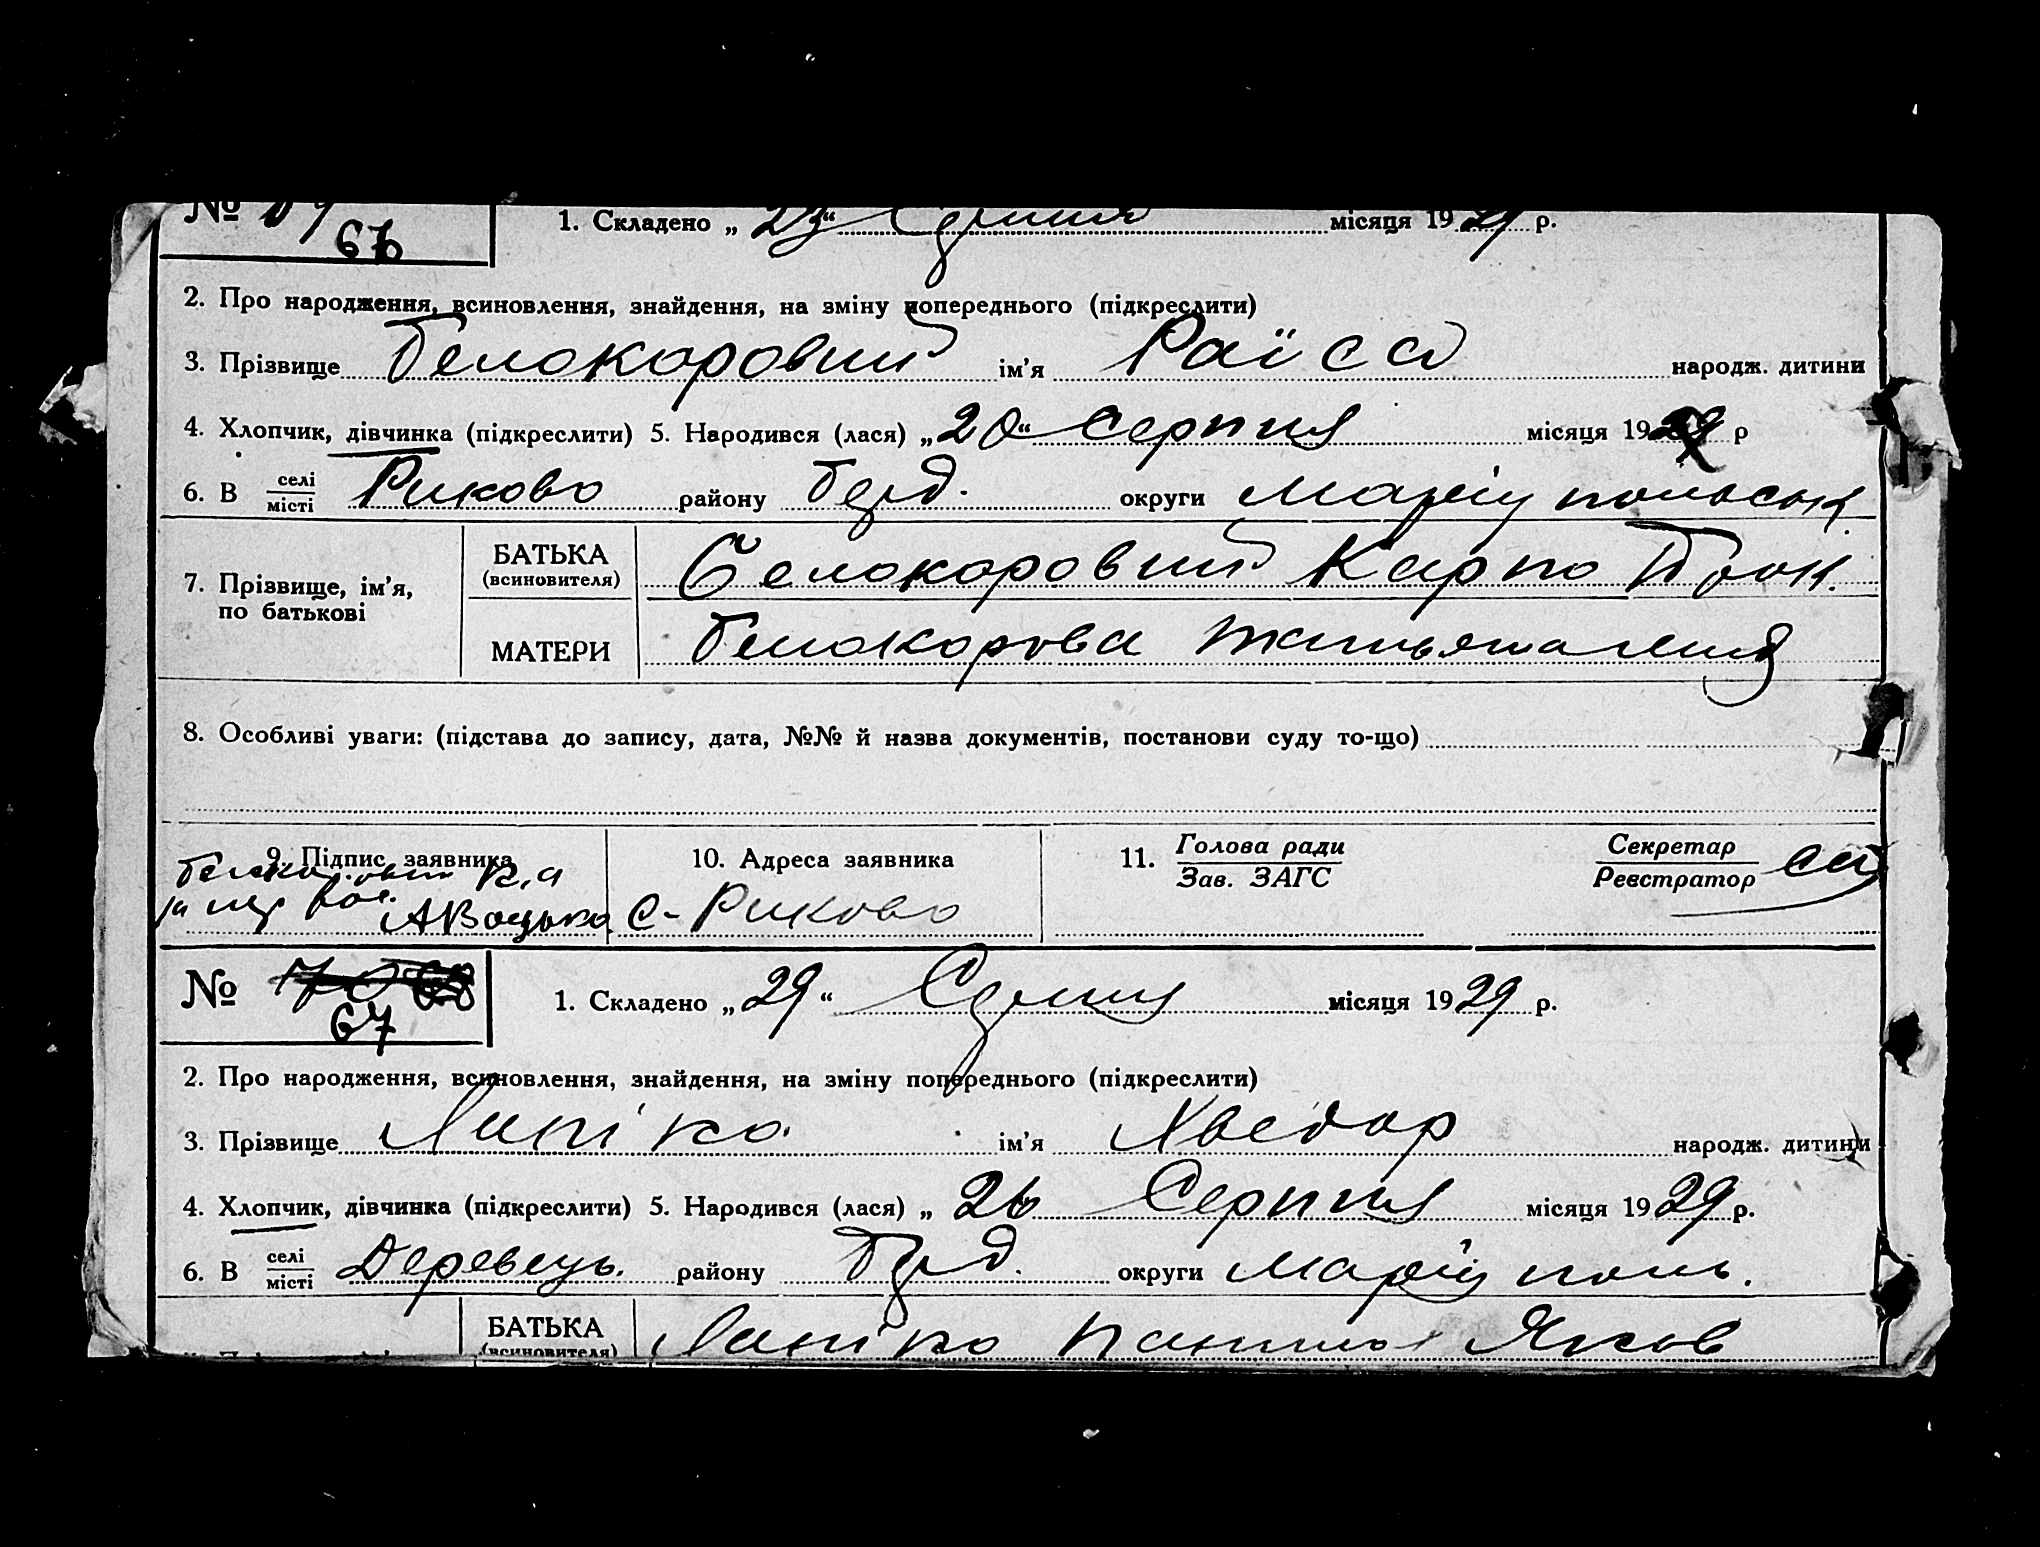 № 69 66
1. Складено „ 23 “ Серпня місяця 1929 р.
2. Про народження, всиновлення, знайдення, на зміну попереднього (підкреслити)
3. Прізвище Белокоровий ім’я Раїса народж. дитини
4. Хлопчик, дівчинка (підкреслити) 5. Народився (лася) „ 20 “ Серпня місяця 1929 р
6. В селі місті Риково району Берд. округи Маріупольськ.
7. Прізвище, ім’я, по батькові
БАТЬКА (всиновителя) Белокоровий Карпо
МАТЕРИ Белокорова
8. Особливі уваги: (підстава до запису, дата, №№ й назва документів, постанови суду то-що)
9. Підпис заявника
10. Адреса заявника
11. Голова ради Зав. ЗАГС
Секретар Реєстратор
с- Риково
№ 67
1. Складено „ 29 “ Серпня місяця 1929 р.
2. Про народження, всиновлення, знайдення, на зміну попереднього (підкреслити)
3. Прізвище Лапіко ім’я Хведор народж. дитини
4. Хлопчик, дівчинка (підкреслити) 5. Народився (лася) „ 26 Серпня місяця 1929 р.
6. В селі місті Деревець. району Берд. округи Маріуполь.
БАТЬКА (всиновителя) Лапіко Яков